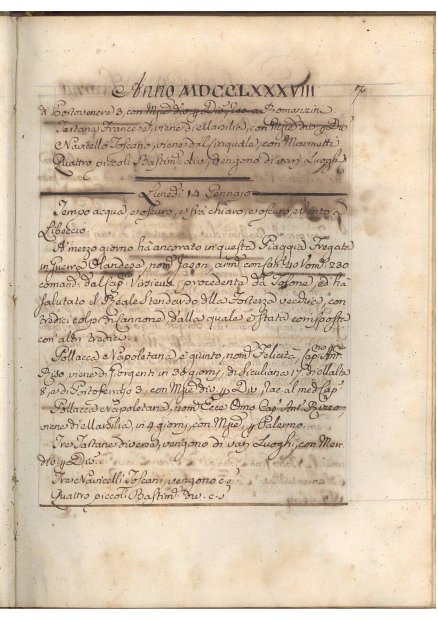 Anno MDCCLXXXVIII 7
di Portovenere 3, con Mjie div. p Div. rac. a Romanzini
Tartana Francese, viene di Marsilia, con Mjie div. p Div.
Navicello Toscano, viene dal Cinquale, con Marmetti
Quattro piccoli Bastim. div. vengono di varj Luoghi
Lunedì 14 Gennajo
Tempo acqua, e oscuro, e frà chiaro, e oscuro, e Vento a
Libeccio
A' mezzo giorno hà ancorato in questa Piaggia Fregata
in Guerra Olandese, nom. Jason, arm. con Can. 40 Vom. 230
comand. dal Cap. procedente da Tolone, ed hà
salutato il Reale Stendardo della Fortezza vecchia, con
tredici colpi di Cannone, dalla quale è stata corrisposta
con altri tredici.
Pollacca Napoletana è giunta, nom. Felicità, Cap. Ant.
viene di Girgenti in 36 giorni, di Siculiana 17, di Malta
8, e di Portoferrajo 3, con Mjie div. p Div. rac. al med. Cap.
Pollacca Napoletana, nom. Ecce Omo Cap. Ant. Rizzo,
viene di Marsilia, in 4 giorni, con Mjie, p Palermo.
Tre Tartane diverse, vengono di varj Luoghi, con Mer.
div. p Div.
Tre Navicelli Toscani, vengono c. s.
Quattro piccoli Bastim. div. c. s.